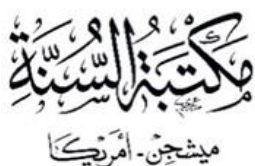 مَكتَبَةُ السُّنَّةِ
ميشجن - أمريكا